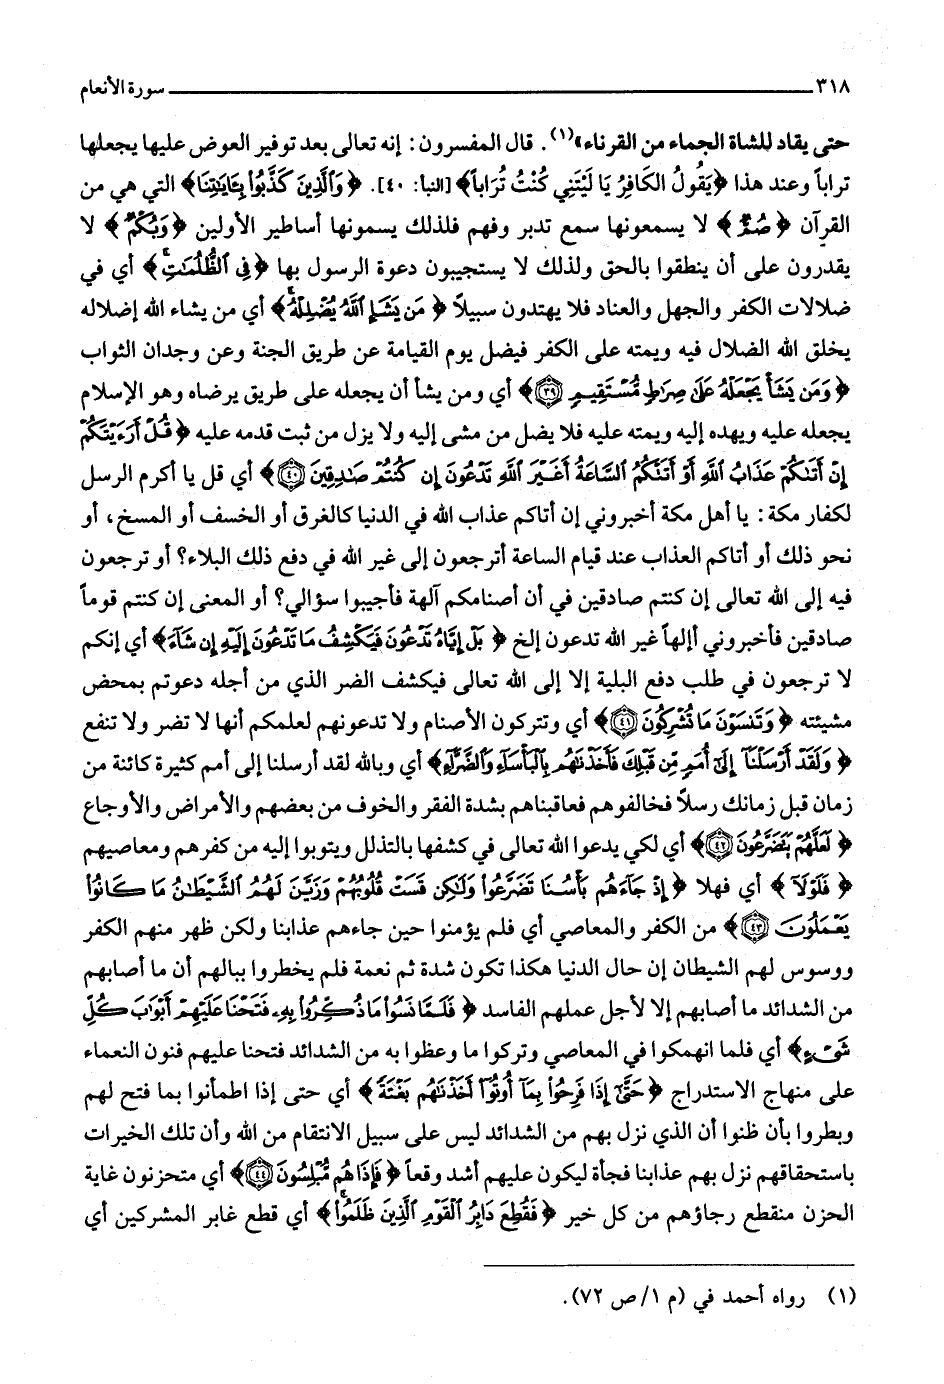 ٣١٨ سورة الأنعام
حتى يقاد للشاة الجماء من القرناء»(١). قال المفسرون: إنه تعالى بعد توفير العوض عليها يجعلها
تراباً وعند هذا ﴿يَقُولُ الكَافِرُ يَا لَيْتَنِي كُنْتُ تُرَاباً﴾[النبأ: ٤٠]. ﴿وَالَّذِينَ كَذَّبُوا بِـَٔايَـٰتِنَا﴾ التي هي من
القرآن ﴿صُمٌّ﴾ لا يسمعونها سمع تدبر وفهم فلذلك يسمونها أساطير الأولين ﴿وَبُكْمٌ﴾ لا
يقدرون على أن ينطقوا بالحق ولذلك لا يستجيبون دعوة الرسول بها ﴿فِي ٱلظُّلُمَـٰتِ﴾ أي في
ضلالات الكفر والجهل والعناد فلا يهتدون سبيلاً ﴿مَن يَشَإِ ٱللَّهُ يُضْلِلْهُ﴾ أي من يشاء الله إضلاله
يخلق الله الضلال فيه ويمته على الكفر فيضل يوم القيامة عن طريق الجنة وعن وجدان الثواب
﴿وَمَن يَشَأْ يَجْعَلْهُ عَلَىٰ صِرَٰطٍ مُّسْتَقِيمٍ ٣٩﴾ أي ومن يشأ أن يجعله على طريق يرضاه وهو الإسلام
يجعله عليه ويهده إليه ويمته عليه فلا يضل من مشى إليه ولا يزل من ثبت قدمه عليه ﴿قُلْ أَرَءَيْتَكُمْ
إِنْ أَتَىٰكُمْ عَذَابُ ٱللَّهِ أَوْ أَتَتْكُمُ ٱلسَّاعَةُ أَغَيْرَ ٱللَّهِ تَدْعُونَ إِن كُنتُمْ صَـٰدِقِينَ ٤٠﴾ أي قل يا أكرم الرسل
لكفار مكة: يا أهل مكة أخبروني إن أتاكم عذاب الله في الدنيا كالغرق أو الخسف أو المسخ، أو
نحو ذلك أو أتاكم العذاب عند قيام الساعة أترجعون إلى غير الله في دفع ذلك البلاء؟ أو ترجعون
فيه إلى الله تعالى إن كنتم صادقين في أن أصنامكم آلهة فأجيبوا سؤالي؟ أو المعنى إن كنتم قوماً
صادقين فأخبروني أإلهاً غير الله تدعون إلخ ﴿بَلْ إِيَّاهُ تَدْعُونَ فَيَكْشِفُ مَا تَدْعُونَ إِلَيْهِ إِن شَآءَ﴾ أي إنكم
لا ترجعون في طلب دفع البلية إلا إلى الله تعالى فيكشف الضر الذي من أجله دعوتم بمحض
مشيئته ﴿وَتَنسَوْنَ مَا تُشْرِكُونَ ٤١﴾ أي وتتركون الأصنام ولا تدعونهم لعلمكم أنها لا تضر ولا تنفع
﴿وَلَقَدْ أَرْسَلْنَآ إِلَىٰٓ أُمَمٍ مِّن قَبْلِكَ فَأَخَذْنَـٰهُم بِٱلْبَأْسَآءِ وَٱلضَّرَّآءِ﴾ أي وبالله لقد أرسلنا إلى أمم كثيرة كائنة من
زمان قبل زمانك رسلاً فخالفوهم فعاقبناهم بشدة الفقر والخوف من بعضهم والأمراض والأوجاع
﴿لَعَلَّهُمْ يَتَضَرَّعُونَ ٤٢﴾ أي لكي يدعوا الله تعالى في كشفها بالتذلل ويتوبوا إليه من كفرهم ومعاصيهم
﴿فَلَوْلَآ﴾ أي فهلا ﴿إِذْ جَآءَهُم بَأْسُنَا تَضَرَّعُوا۟ وَلَـٰكِن قَسَتْ قُلُوبُهُمْ وَزَيَّنَ لَهُمُ ٱلشَّيْطَـٰنُ مَا كَانُوا۟
يَعْمَلُونَ ٤٣﴾ من الكفر والمعاصي أي فلم يؤمنوا حين جاءهم عذابنا ولكن ظهر منهم الكفر
ووسوس لهم الشيطان إن حال الدنيا هكذا تكون شدة ثم نعمة فلم يخطروا ببالهم أن ما أصابهم
من الشدائد ما أصابهم إلا لأجل عملهم الفاسد ﴿فَلَمَّا نَسُوا۟ مَا ذُكِّرُوا۟ بِهِۦ فَتَحْنَا عَلَيْهِمْ أَبْوَٰبَ كُلِّ
شَىْءٍ﴾ أي فلما انهمكوا في المعاصي وتركوا ما وعظوا به من الشدائد فتحنا عليهم فنون النعماء
على منهاج الاستدراج ﴿حَتَّىٰٓ إِذَا فَرِحُوا۟ بِمَآ أُوتُوٓا۟ أَخَذْنَـٰهُم بَغْتَةً﴾ أي حتى إذا اطمأنوا بما فتح لهم
وبطروا بأن ظنوا أن الذي نزل بهم من الشدائد ليس على سبيل الانتقام من الله وأن تلك الخيرات
باستحقاقهم نزل بهم عذابنا فجأة ليكون عليهم أشد وقعاً ﴿فَإِذَا هُم مُّبْلِسُونَ ٤٤﴾ أي متحزنون غاية
الحزن منقطع رجاؤهم من كل خير ﴿فَقُطِعَ دَابِرُ ٱلْقَوْمِ ٱلَّذِينَ ظَلَمُوا۟﴾ أي قطع غابر المشركين أي
(١) رواه أحمد في (م ١/ ص ٧٢).